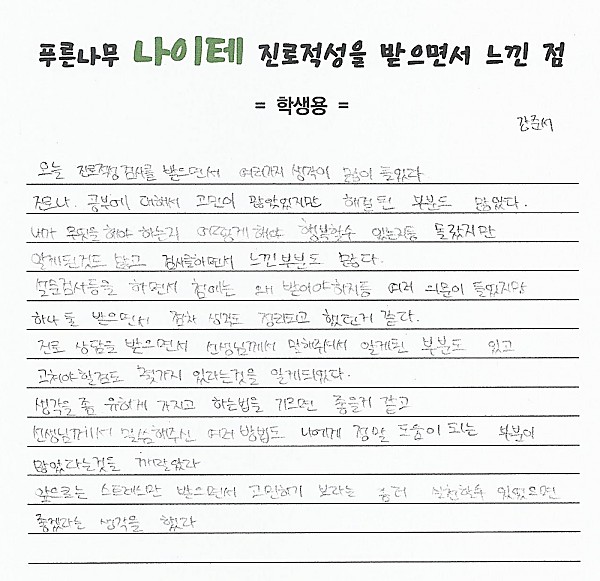 푸른나무 나이테 진로적성을 받으면서 느낀 점
= 학생용 =
강준서
오늘 진로적성검사를 받으면서 여러가지 생각이 많이 들었다
진로나 공부에 대해서 고민이 많았었지만 해결된 부분도 많았다.
내가 무엇을 해야 하는지 어떻게 해야 행복할수 있는지등 몰랐지만
알게된것도 많고 검사를하면서 느낀부분도 많다.
설문검사등을 하면서 첨에는 왜 받아야하지등 여러 의문이 들었지만
하나 둘 받으면서 점차 생각도 정리되고 했던거 같다.
진로 상담을 받으면서 선생님께서 말해줘서 알게된 부분도 있고
고쳐야할점도 몇가지 있다는것을 알게되었다.
생각을 좀 유하게 가지고 하는법을 기르면 좋을거 같고
선생님께서 말씀해주신 여러 방법도 나에게 정말 도움이 되는 부분이
많았다는것을 깨달았다
앞으로는 스트레스만 받으면서 고민하기 보다는 좀더 실천할수 있었으면
좋겠다는 생각을 했다